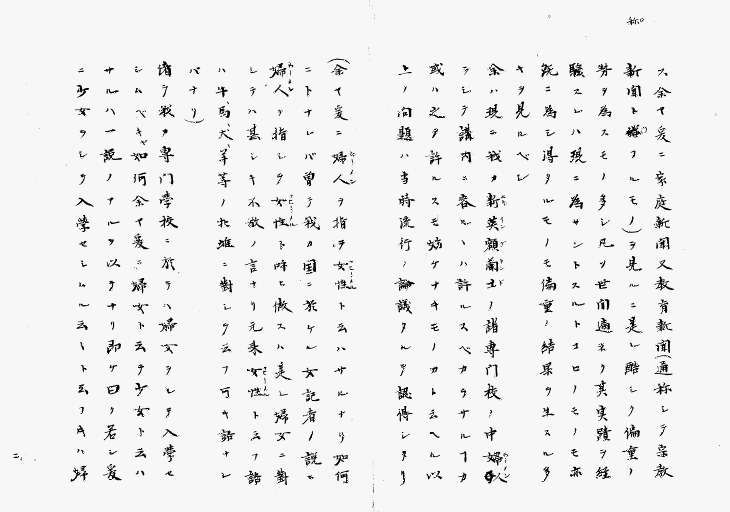 ス余ハ爰ニ家庭新聞又教育新聞(通称シテ宗教
新聞ト称フルモノ)ヲ見ルニ是レ酷シク偏重ノ
弊ヲ為スモノ多シ凡ソ世間遍ネク其実蹟ヲ経
験スレハ現ニ為サントスルトコロノモノモ亦
既ニ為シ得タルモノモ偏重ノ結果ヲ生スル多
キヲ見ルベシ
余ハ現ニ我カ新英蘭土ノ諸専門校ノ中婦人
ヲシテ講内ニ容ルヽハ許ルスベカラサルヿカ
或ハ之ヲ許ルスモ妨ケナキモノカト云ヘル以
上ノ問題ハ当時流行ノ論議タルヲ認得シタリ
(余ハ爰ニ婦人ヲ指テ女性ト云ハサルナリ如何
ニトナレバ曽テ我カ国ニ於ケル女記者ノ説ニ
婦人ヲ指シテ女性ト呼ヒ做スハ是レ婦女ニ対
シテハ甚シキ不敬ノ言ナリ元来女性ト云フ語
ハ牛馬犬羊等ノ牝雄ニ対シテ云フ可キ語ナレ
バナリ)
偖テ我カ専門学校ニ於テハ婦女ヲシテ入学セ
シムベキヤ如何余ハ爰ニ婦女ト云テ少女ト云ハ
サルハ一説ノアルヲ以テナリ即ケ曰ク若シ爰
ニ少女ヲシテ入学セシムル云々ト云フキハ婦